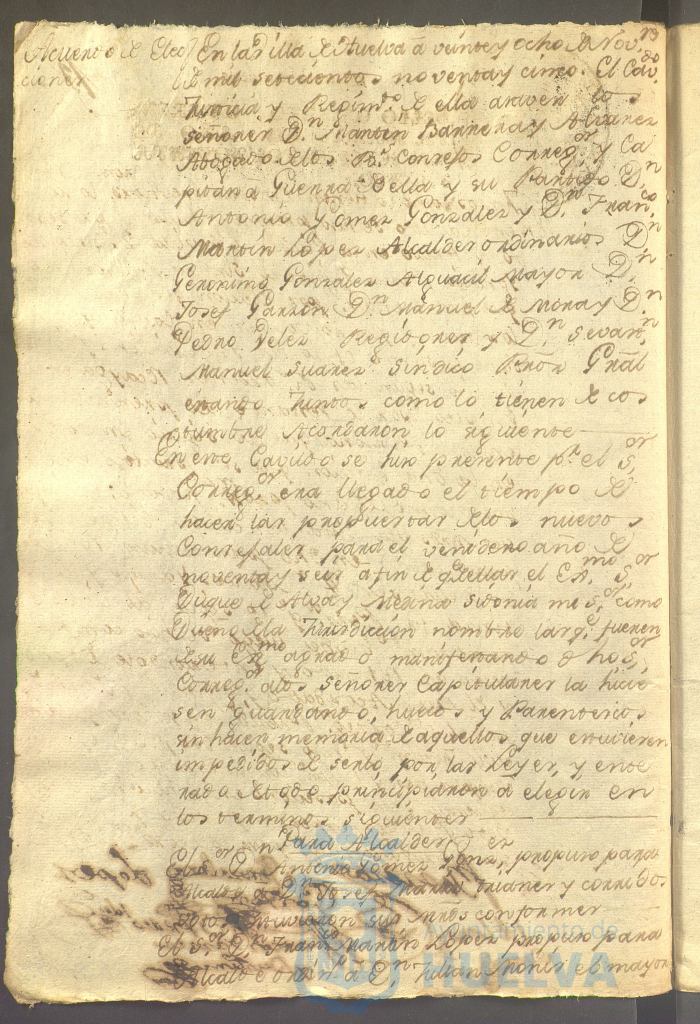 73
Acuerdo de Elec
ciones
En la Villa de Huelva â veinte y ocho de Nov.
de mil setecientos noventa y cinco. El Cav.do
Justicia y Regim.to de ella asaven los
señores D.n Martin Barrera y Alvarez
Abogado de los R.s Consejos Correg.or y Ca
pitan a Guerra de ella y su Partido D.n
Antonio Gomez Gonzalez y D.n Fran.co
Martin Lopez Alcaldes ordinarios D.n
Geronimo Gonzalez Alguacil Mayor D.n
Josef Garzon D.n Manuel de Mora y D.n
Pedro Velez Regidores y D.n
Manuel Suarez Sindico Pror Gñal
estando Juntos como lo tienen de cos
tumbre Acordaron lo siguiente
En este Cavildo se hizo presente p.r el S.or
Correg.or era llegado el tiempo de
hacer las propuestas de los nuevos
Consejales para el venidero año de
noventa y seis a fin de q.e el Ex.mo S.or
Duque de Alva y Medina sidonia mi S.or como
Dueño de la Jurisdiccion nombre los q.e fueren
de su agrado manifestando dho S.or
Correg.or a los señores Capitulares la hicie
sen guardando, huecos y Parentescos
sin hacer memoria de aquellos que estuvieren
impedidos de serlo por las Leyes, y ente
rado de todo principiaron â elegir en
los terminos siguientes
Para Alcaldes
El s.or D.n Antonio Gomez Gonz.z propuso para
Alcalde a D.n Josef Maria Trianes y corridos
votos estuvieron sus mrds conformes
El S.or D.n Fran.co Martin Lopez propuso para
Alcalde ordin.o a D.n Julian Montis el mayor
Ayuntamiento de
HUELVA